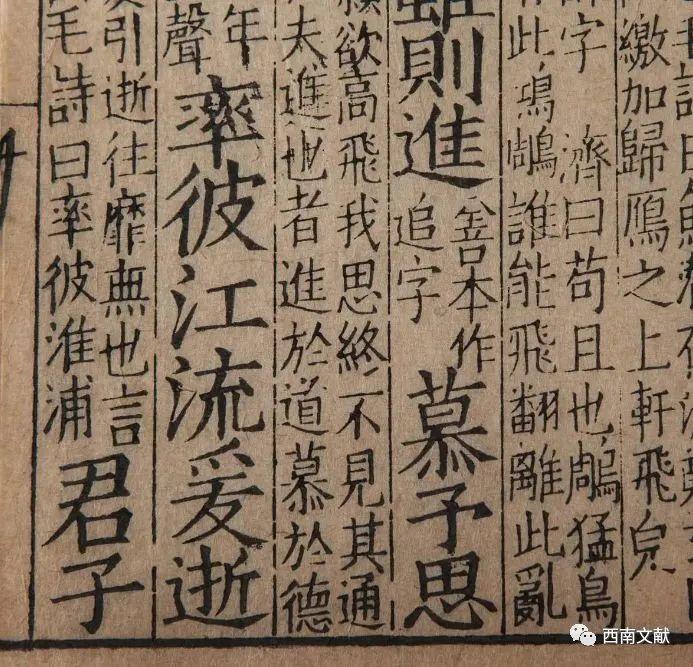 繳加歸鴈之上軒飛皃
字 濟曰苟且也 猛鳥
此 誰能飛翻離此亂
雖則進
善本作
追字
慕予思
欲高飛我思終不見其通
夫進也者進於道慕於德
年
聲
率彼江流爰逝
引逝往靡無也言
毛詩曰率彼淮浦
君子
西南文献